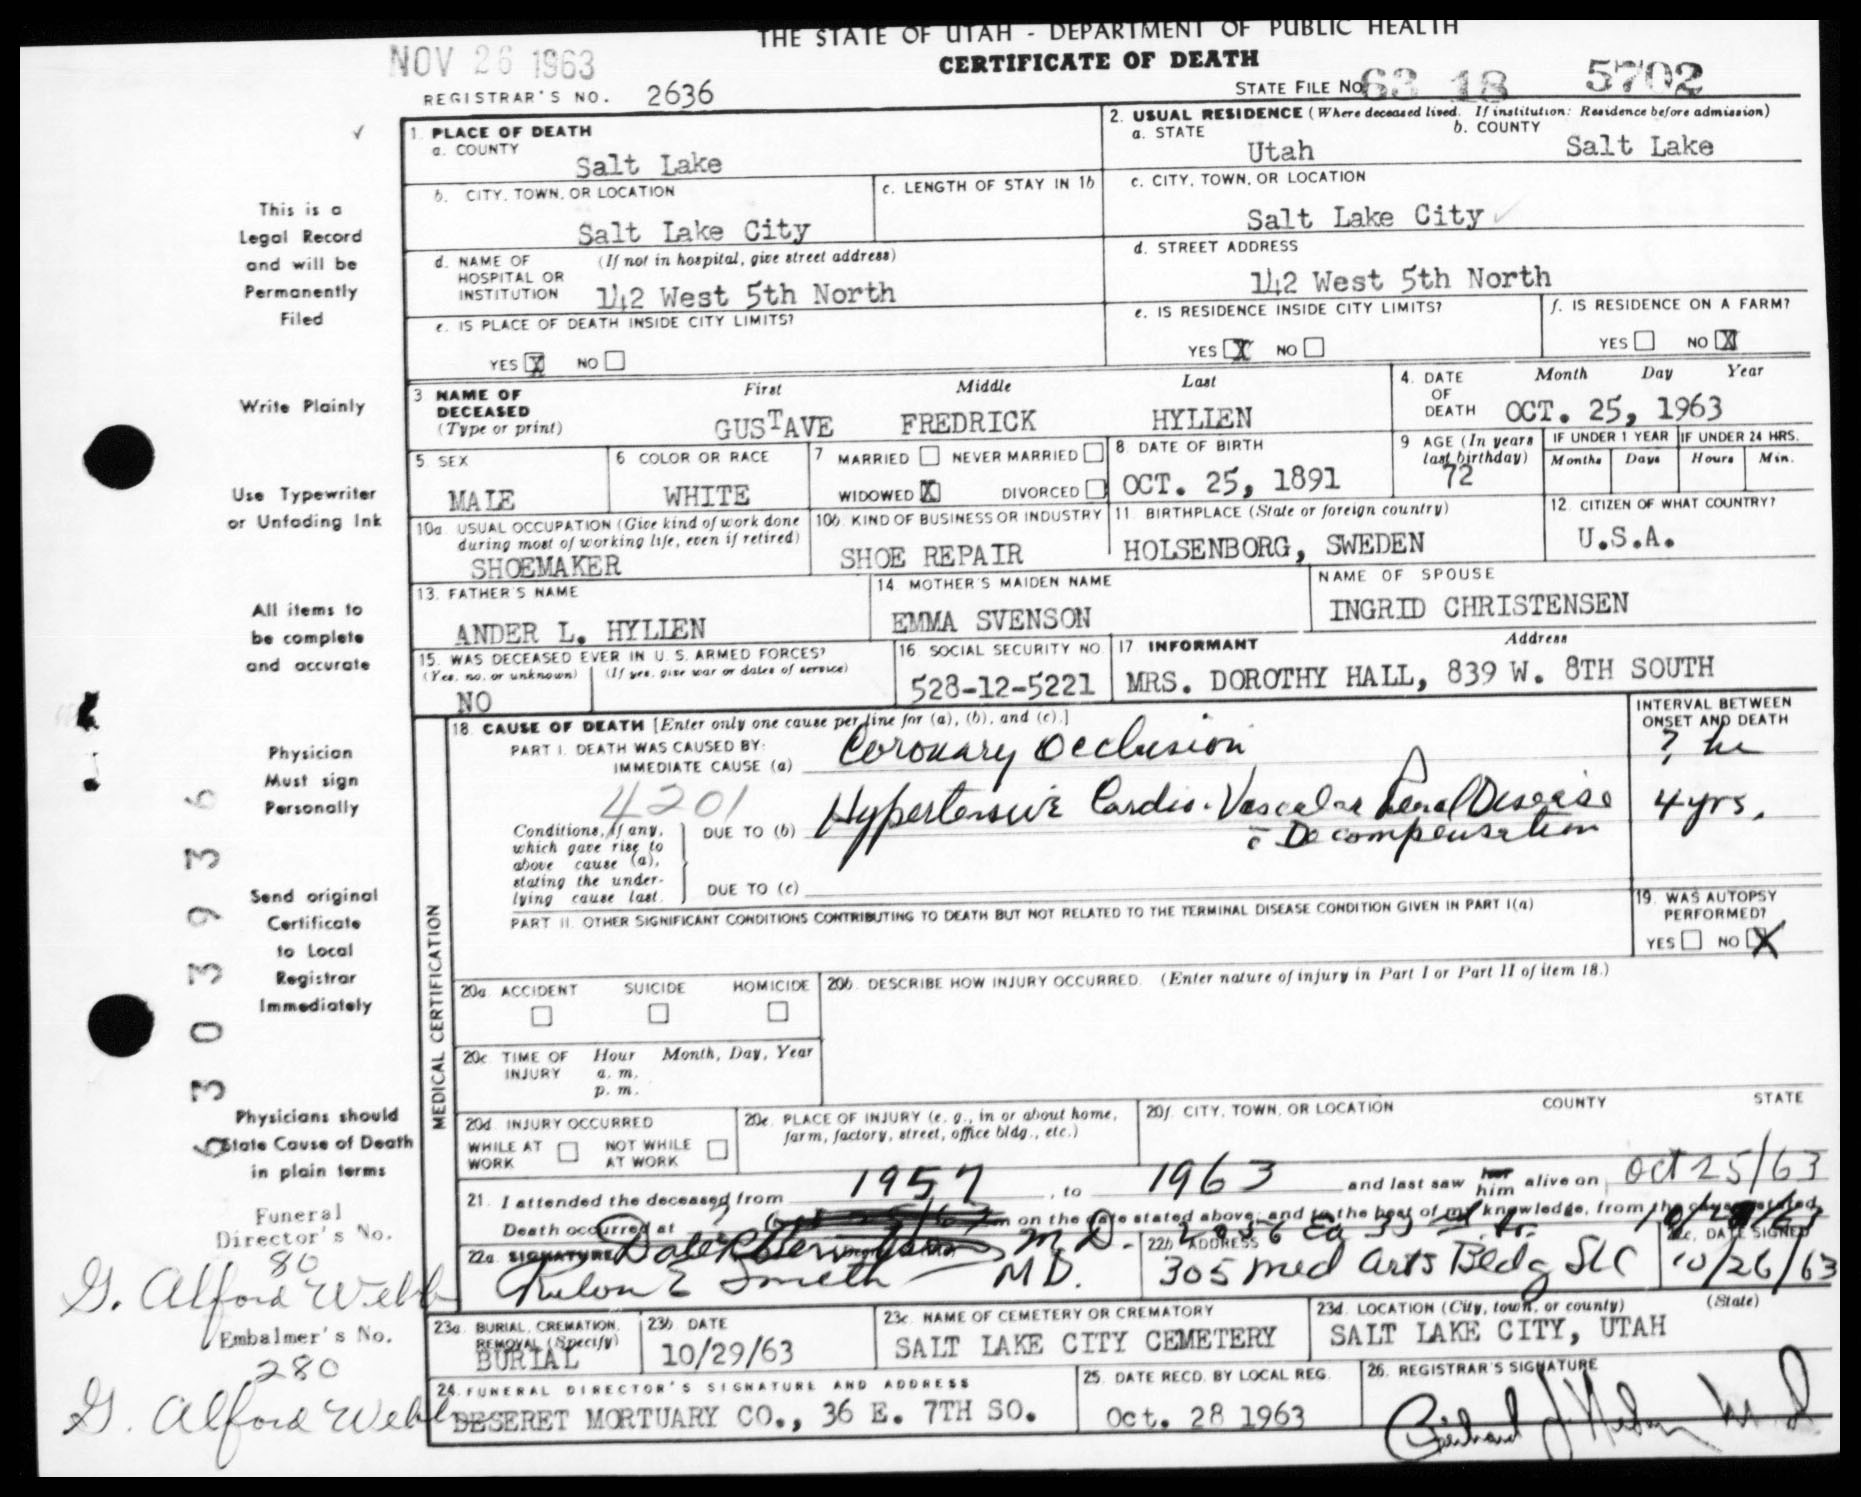 THE STATE OF UTAH - DEPARTMENT OF PUBLIC HEALTH
NOV 26 1963
CERTIFICATE OF DEATH
REGISTRAR'S NO. 2636
STATE FILE NO. 63 18 5702
1. PLACE OF DEATH
a. COUNTY
Salt Lake
2. USUAL RESIDENCE (Where deceased lived. If institution: Residence before admission)
a. STATE b. COUNTY
Utah Salt Lake
b. CITY, TOWN, OR LOCATION
Salt Lake City
c. LENGTH OF STAY IN 1b
c. CITY, TOWN, OR LOCATION
Salt Lake City
d. NAME OF (If not in hospital, give street address)
HOSPITAL OR
INSTITUTION 142 West 5th North
d. STREET ADDRESS
142 West 5th North
e. IS PLACE OF DEATH INSIDE CITY LIMITS?
YES X NO
e. IS RESIDENCE INSIDE CITY LIMITS?
YES X NO
f. IS RESIDENCE ON A FARM?
YES NO X
3 NAME OF First Middle Last
DECEASED
(Type or print) GUSTAVE FREDRICK HYLLEN
4. DATE Month Day Year
OF
DEATH OCT. 25, 1963
5 SEX
MALE
6 COLOR OR RACE
WHITE
7 MARRIED NEVER MARRIED
WIDOWED X DIVORCED
8 DATE OF BIRTH
OCT. 25, 1891
9 AGE (In years
last birthday)
72
IF UNDER 1 YEAR IF UNDER 24 HRS.
Months Days Hours Min.
10a USUAL OCCUPATION (Give kind of work done
during most of working life, even if retired)
SHOEMAKER
10b. KIND OF BUSINESS OR INDUSTRY
SHOE REPAIR
11. BIRTHPLACE (State or foreign country)
HOLSENBORG, SWEDEN
12. CITIZEN OF WHAT COUNTRY?
U.S.A.
13. FATHER'S NAME
ANDER L. HYLLEN
14. MOTHER'S MAIDEN NAME
EMMA SVENSON
NAME OF SPOUSE
INGRID CHRISTENSEN
15. WAS DECEASED EVER IN U. S. ARMED FORCES?
(Yes, no, or unknown) (If yes, give war or dates of service)
NO
16. SOCIAL SECURITY NO.
528-12-5221
17 INFORMANT Address
MRS. DOROTHY HALL, 839 W. 8TH SOUTH
MEDICAL CERTIFICATION
18. CAUSE OF DEATH [Enter only one cause per line for (a), (b), and (c).]
INTERVAL BETWEEN
ONSET AND DEATH
PART I. DEATH WAS CAUSED BY:
IMMEDIATE CAUSE (a) Coronary Occlusion
4201
Conditions, if any,
which gave rise to
above cause (a),
stating the under-
lying cause last.
DUE TO (b) Hypertensive Cardio-Vascular Renal Disease 4 yrs.
c̄ Decompensation
DUE TO (c)
PART II. OTHER SIGNIFICANT CONDITIONS CONTRIBUTING TO DEATH BUT NOT RELATED TO THE TERMINAL DISEASE CONDITION GIVEN IN PART I(a)
19. WAS AUTOPSY
PERFORMED?
YES NO X
20a. ACCIDENT SUICIDE HOMICIDE
20b. DESCRIBE HOW INJURY OCCURRED. (Enter nature of injury in Part I or Part II of item 18.)
20c. TIME OF Hour Month, Day, Year
INJURY a. m.
p. m.
20d. INJURY OCCURRED
WHILE AT WORK NOT WHILE AT WORK
20e. PLACE OF INJURY (e. g., in or about home,
farm, factory, street, office bldg., etc.)
20f. CITY, TOWN, OR LOCATION COUNTY STATE
21. I attended the deceased from 1957, to 1963 and last saw her him alive on Oct 25/63
Death occurred at m on the date stated above; and to the best of my knowledge, from the causes stated.
22a. SIGNATURE M D.
Smith M D.
22b ADDRESS
305 Med Arts Bldg SLC
22c. DATE SIGNED
10/26/63
23a. BURIAL, CREMATION,
REMOVAL (Specify)
BURIAL
23b DATE
10/29/63
23c. NAME OF CEMETERY OR CREMATORY
SALT LAKE CITY CEMETERY
23d. LOCATION (City, town, or county) (State)
SALT LAKE CITY, UTAH
24. FUNERAL DIRECTOR'S SIGNATURE AND ADDRESS
DESERET MORTUARY CO., 36 E. 7TH SO.
25. DATE RECD. BY LOCAL REG.
Oct. 28 1963
26. REGISTRAR'S SIGNATURE
This is a
Legal Record
and will be
Permanently
Filed
Write Plainly
Use Typewriter
or Unfading Ink
All items to
be complete
and accurate
Physician
Must sign
Personally
Send original
Certificate
to Local
Registrar
Immediately
Physicians should
State Cause of Death
in plain terms
Funeral
Director's No.
80
G. Alford Webb
Embalmer's No.
280
G. Alford Webb
3303936